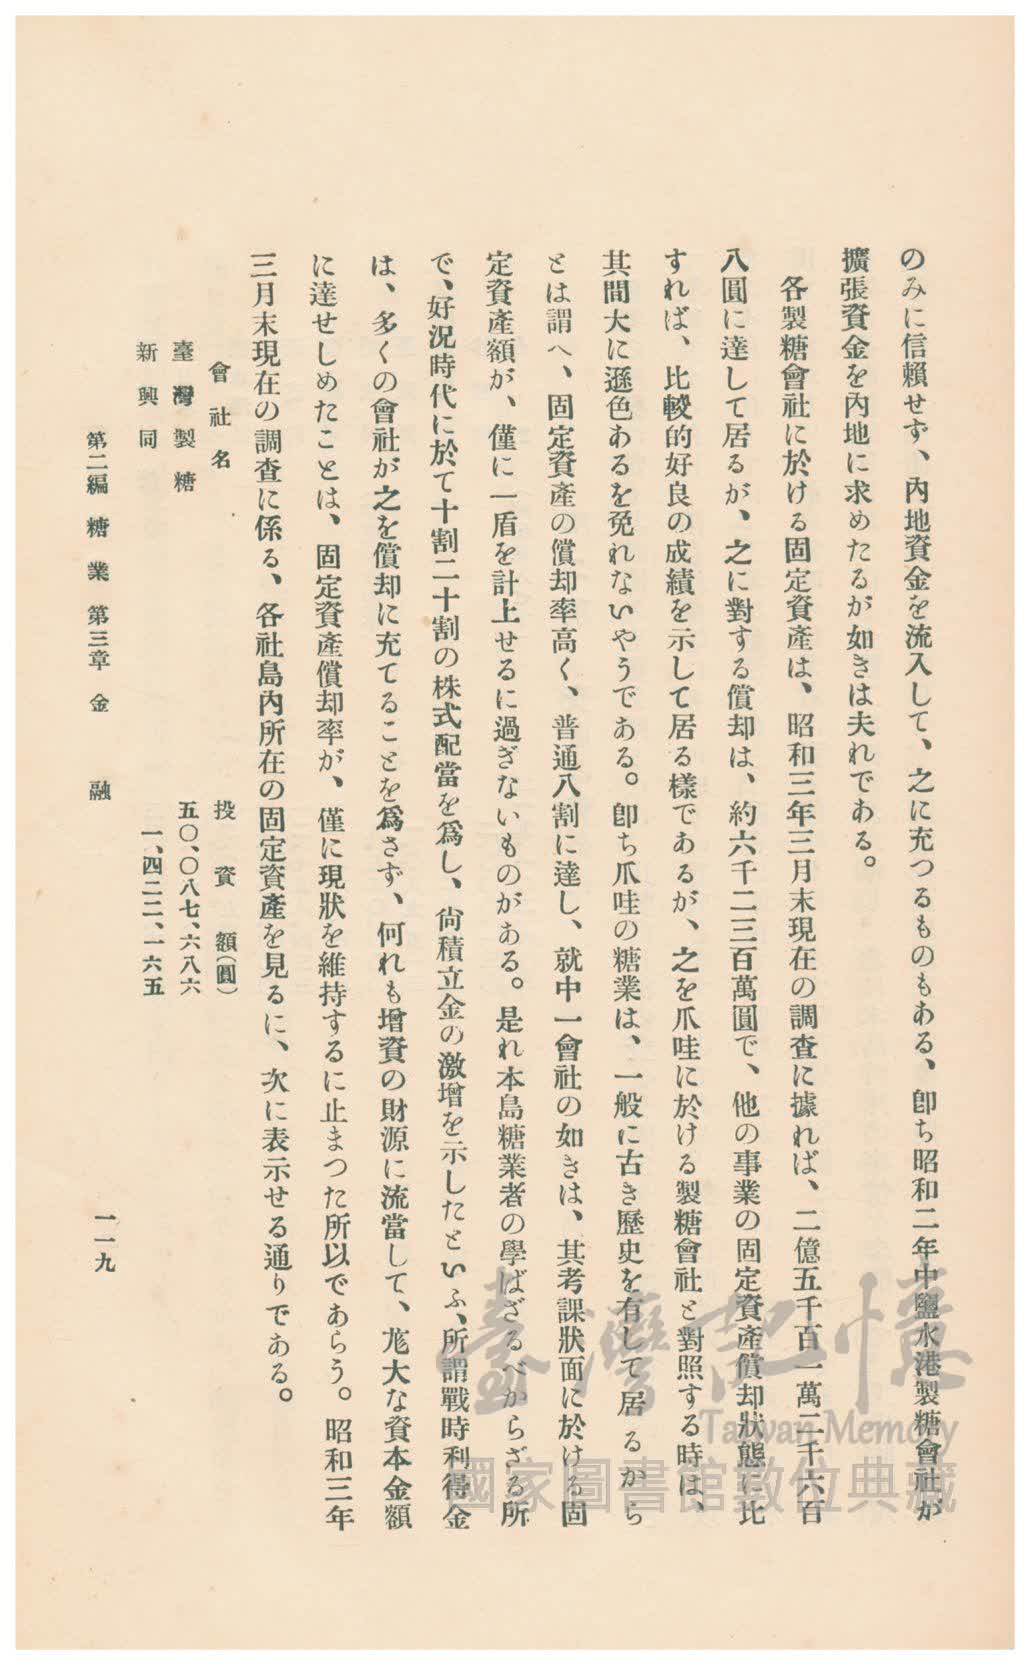 のみに信賴せず、內地資金を流入して、之に充つるものもある、卽ち昭和二年中鹽水港製糖會社が
擴張資金を內地に求めたるが如きは夫れである。
各製糖會社に於ける固定資產は、昭和三年三月末現在の調査に據れば、二億五千百一萬二千六百
八圓に達して居るが、之に對する償却は、約六千二三百萬圓で、他の事業の固定資產償却狀態に比
すれば、比較的好良の成績を示して居る樣であるが、之を爪哇に於ける製糖會社と對照する時は、
其間大に遜色あるを免れないやうである。卽ち爪哇の糖業は、一般に古き歷史を有して居るから
とは謂へ、固定資產の償却率高く、普通八割に達し、就中一會社の如きは、其考課狀面に於ける固
定資產額が、僅に一盾を計上せるに過ぎないものがある。是れ本島糖業者の學ばざるべからざる所
で、好況時代に於て十割二十割の株式配當を爲し、尙積立金の激增を示したといふ、所謂戰時利得金
は、多くの會社が之を償却に充てることを爲さず、何れも增資の財源に流當して、尨大な資本金額
に達せしめたことは、固定資產償却率が、僅に現狀を維持するに止まつた所以であらう。昭和三年
三月末現在の調査に係る、各社島內所在の固定資產を見るに、次に表示せる通りである。
會社名 投資額(圓)
臺灣製糖 五〇、〇八七、六八六
新興同 一、四二二、一六五
第二編 糖業 第三章 金融 一一九
臺灣記憶
Taiwan Memory
國家圖書館數位典藏